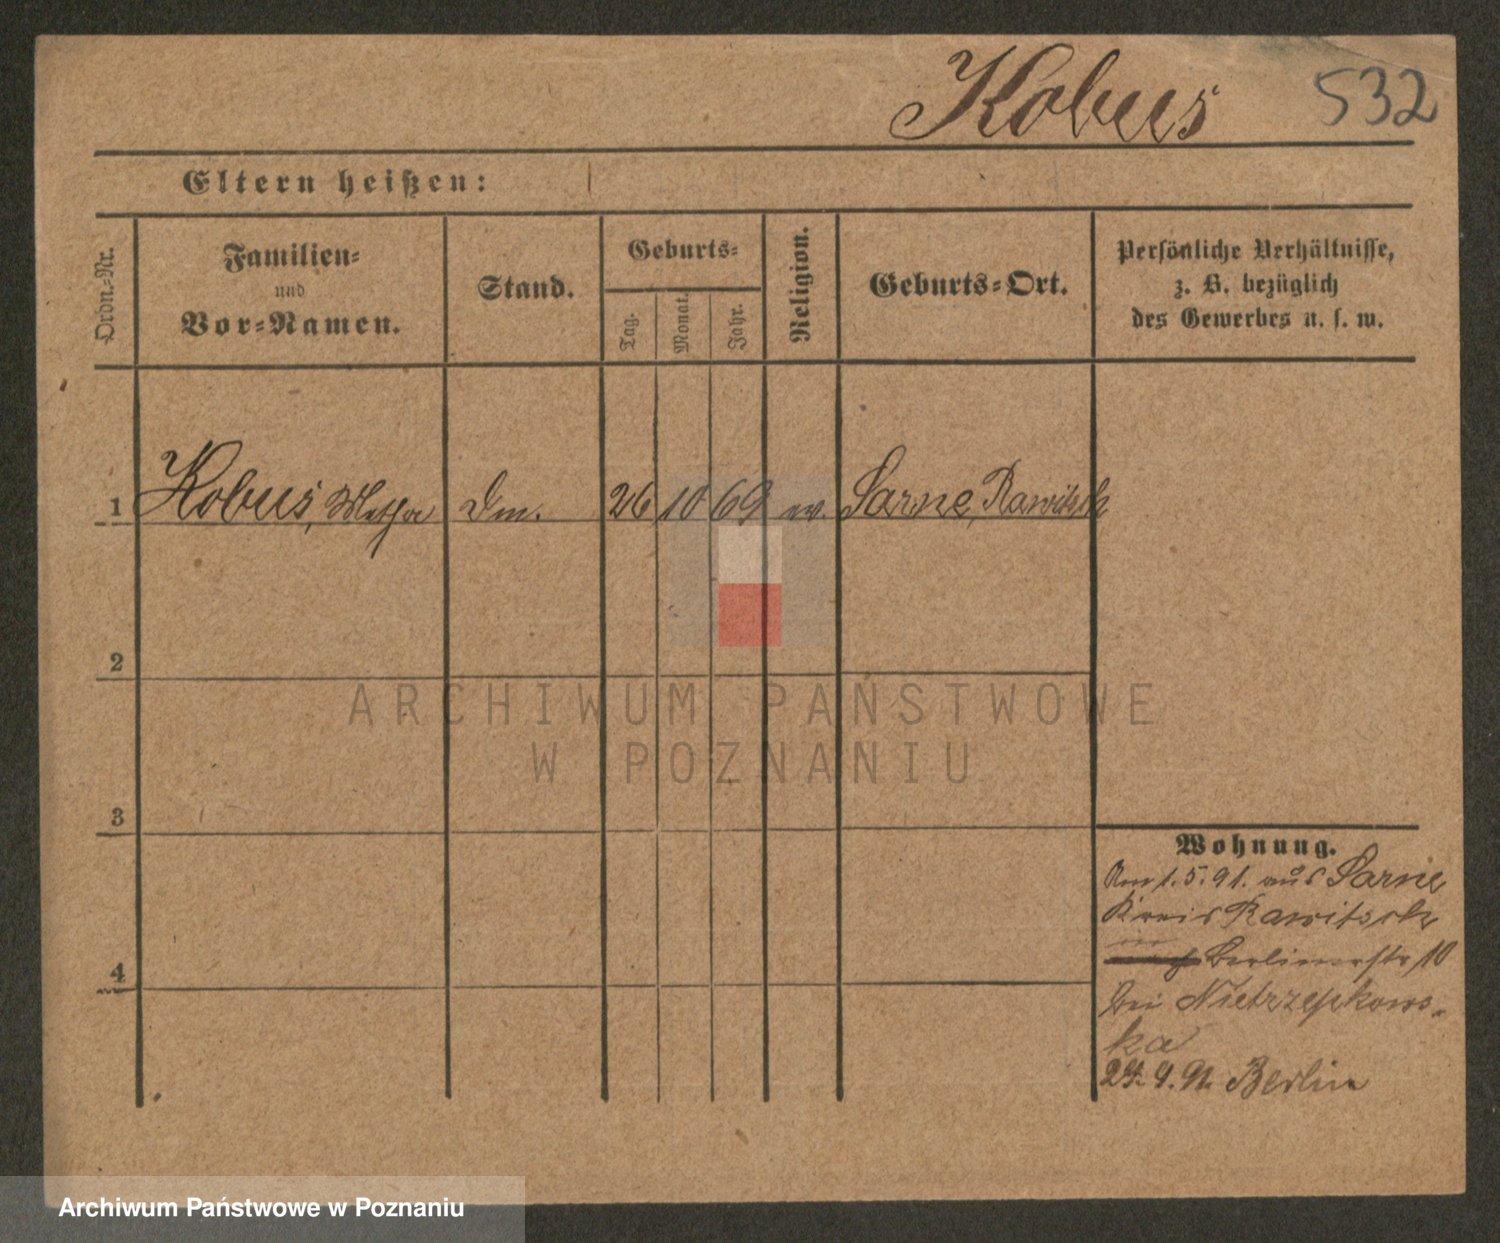 Kobus 532
Eltern heißen:
Ordn.-Nr.
Familien-
und
Vor-Namen.
Stand.
Geburts-
Tag.
Monat.
Jahr.
Religion.
Geburts-Ort.
Persönliche Verhältnisse,
z. B. bezüglich
des Gewerbes u. s. w.
1 Kobus, 26 10 69 Sarne, Rawitsch
2
ARCHIWUM PAŃSTWOWE
W POZNANIU
3
Wohnung.
Am 1.5.91. aus Sarne
Kreis Rawitsch
Berlinerstr 10
4
bei Nietrzepkows-
ka
Berlin
Archiwum Państwowe w Poznaniu